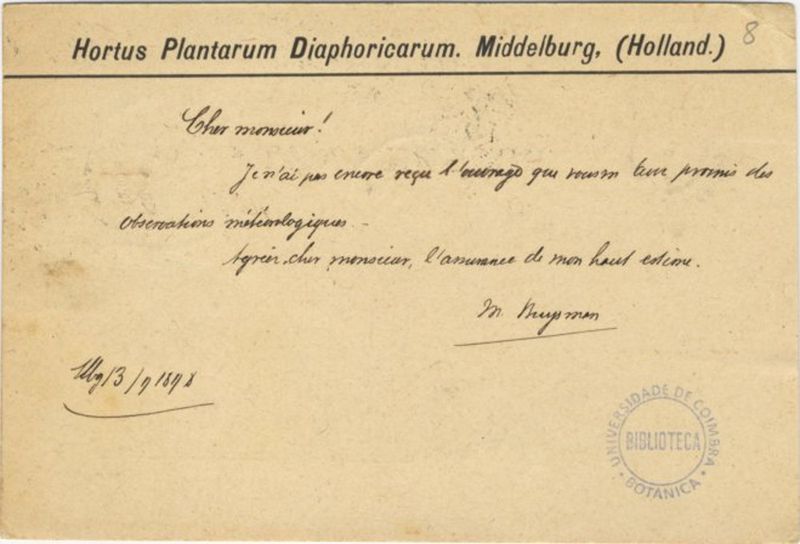 8
Hortus Plantarum Diaphoricarum. Middelburg, (Holland.)
Cher monsieur!
Je n'ai pas encore reçu l'ouvrage que vous m promis des
observations météorologiques.
Agréer, cher monsieur, l'assurance de mon haut estime.
M. Buysman
13/9 1898
UNIVERSIDADE DE COIMBRA
BIBLIOTECA
BOTÂNICA